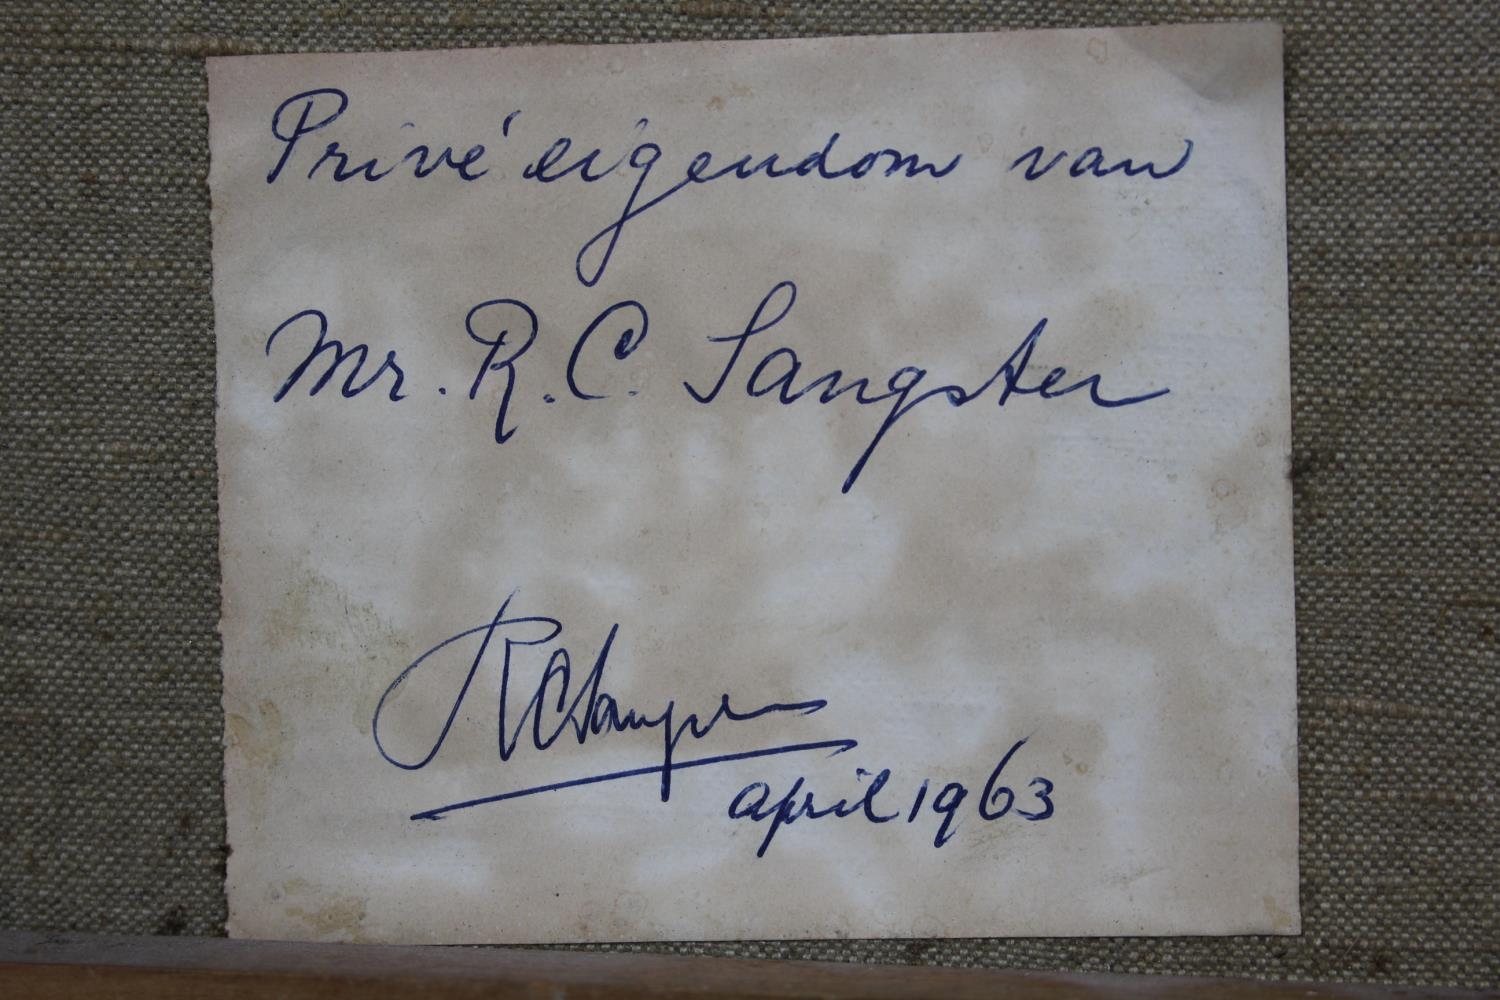 Privé eigendom van
Mr. R. C. Sangster
RCSangster
april 1963